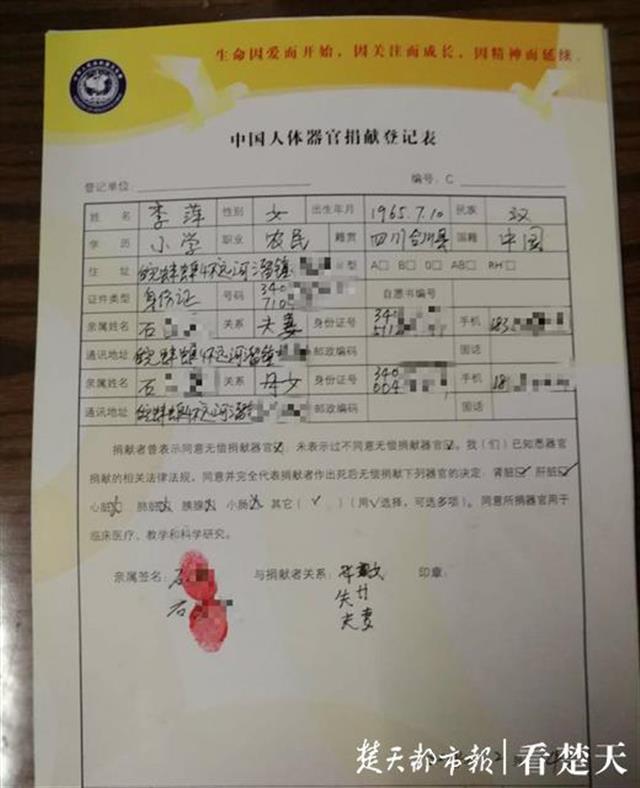 生命因爱而开始，因关注而成长，因精神而延续.
中国人体器官捐献登记表
登记单位： 编号：C
姓名 李萍 性别 女 出生年月 1965.7.10 民族 汉
学历 小学 职业 农民 籍贯 四川合川县 国籍 中国
住址 皖蚌埠怀远河溜镇 血型 A□ B□ O□ AB□ RH□
证件类型 身份证 号码 340 710 自愿书编号
亲属姓名 石 关系 夫妻 身份证号 340 手机 183
通讯地址 皖蚌埠怀远河溜镇 邮政编码 固话
亲属姓名 石 关系 母女 身份证号 340 604 手机 18
通讯地址 皖蚌埠怀远河溜 邮政编码 固话
捐献者曾表示同意无偿捐献器官☑，未表示过不同意无偿捐献器官☑。我（们）已知悉器官
捐献的相关法律法规，同意并完全代表捐献者作出死后无偿捐献下列器官的决定：肾脏☑ 肝脏☑
心脏☑ 肺脏☑ 胰腺☑ 小肠☑ 其它（ √ ）（用√选择，可选多项）。同意所捐器官用于
临床医疗、教学和科学研究。
亲属签名： 石 与捐献者关系： 印章：
石
夫妻
楚天都市报 | 看楚天